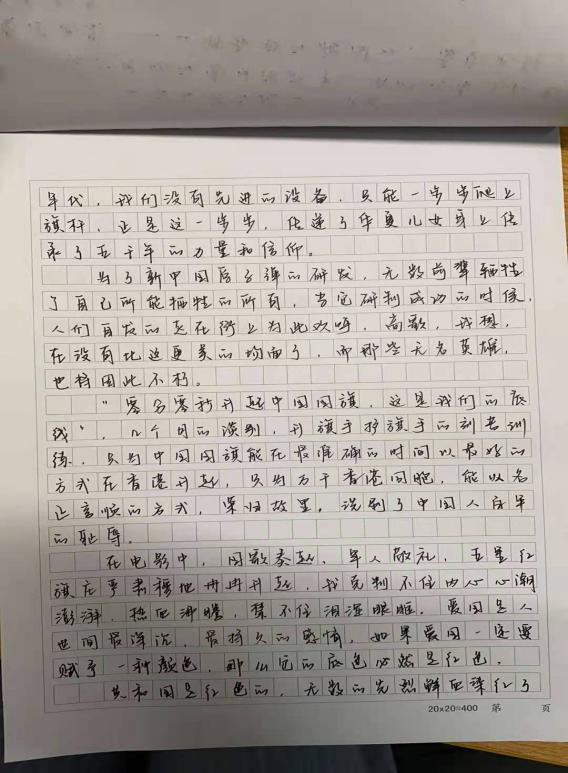 年代，我们没有先进的设备，只能一步步爬上
旗杆，正是这一步步，传递了华夏儿女身上传
承了五千年的力量和信仰。
为了新中国原子弹的研发，无数前辈牺牲
了自己所能牺牲的所有，当它研制成功的时候，
人们自发的走在街上为此欢呼，高歌，我想，
在没有比这更美的场面了，而那些无名英雄，
也将因此不朽。
“零分零秒升起中国国旗，这是我们的底
线”，几个月的谈判，升旗手护旗手的刻苦训
练，只为中国国旗能在最准确的时间以最好的
方式在香港升起，只为万千香港同胞，能以名
正言顺的方式，荣归故里，洗刷了中国人百年
的耻辱。
在电影中，国歌奏起，军人敬礼，五星红
旗庄严肃穆地冉冉升起，我克制不住内心心潮
澎湃，热血沸腾，禁不住泪湿眼眶。爱国是人
世间最深沉，最持久的感情，如果爱国一定要
赋予一种颜色，那么它的底色必然是红色。
共和国是红色的，无数的先烈鲜血染红了
20×20=400 第 页